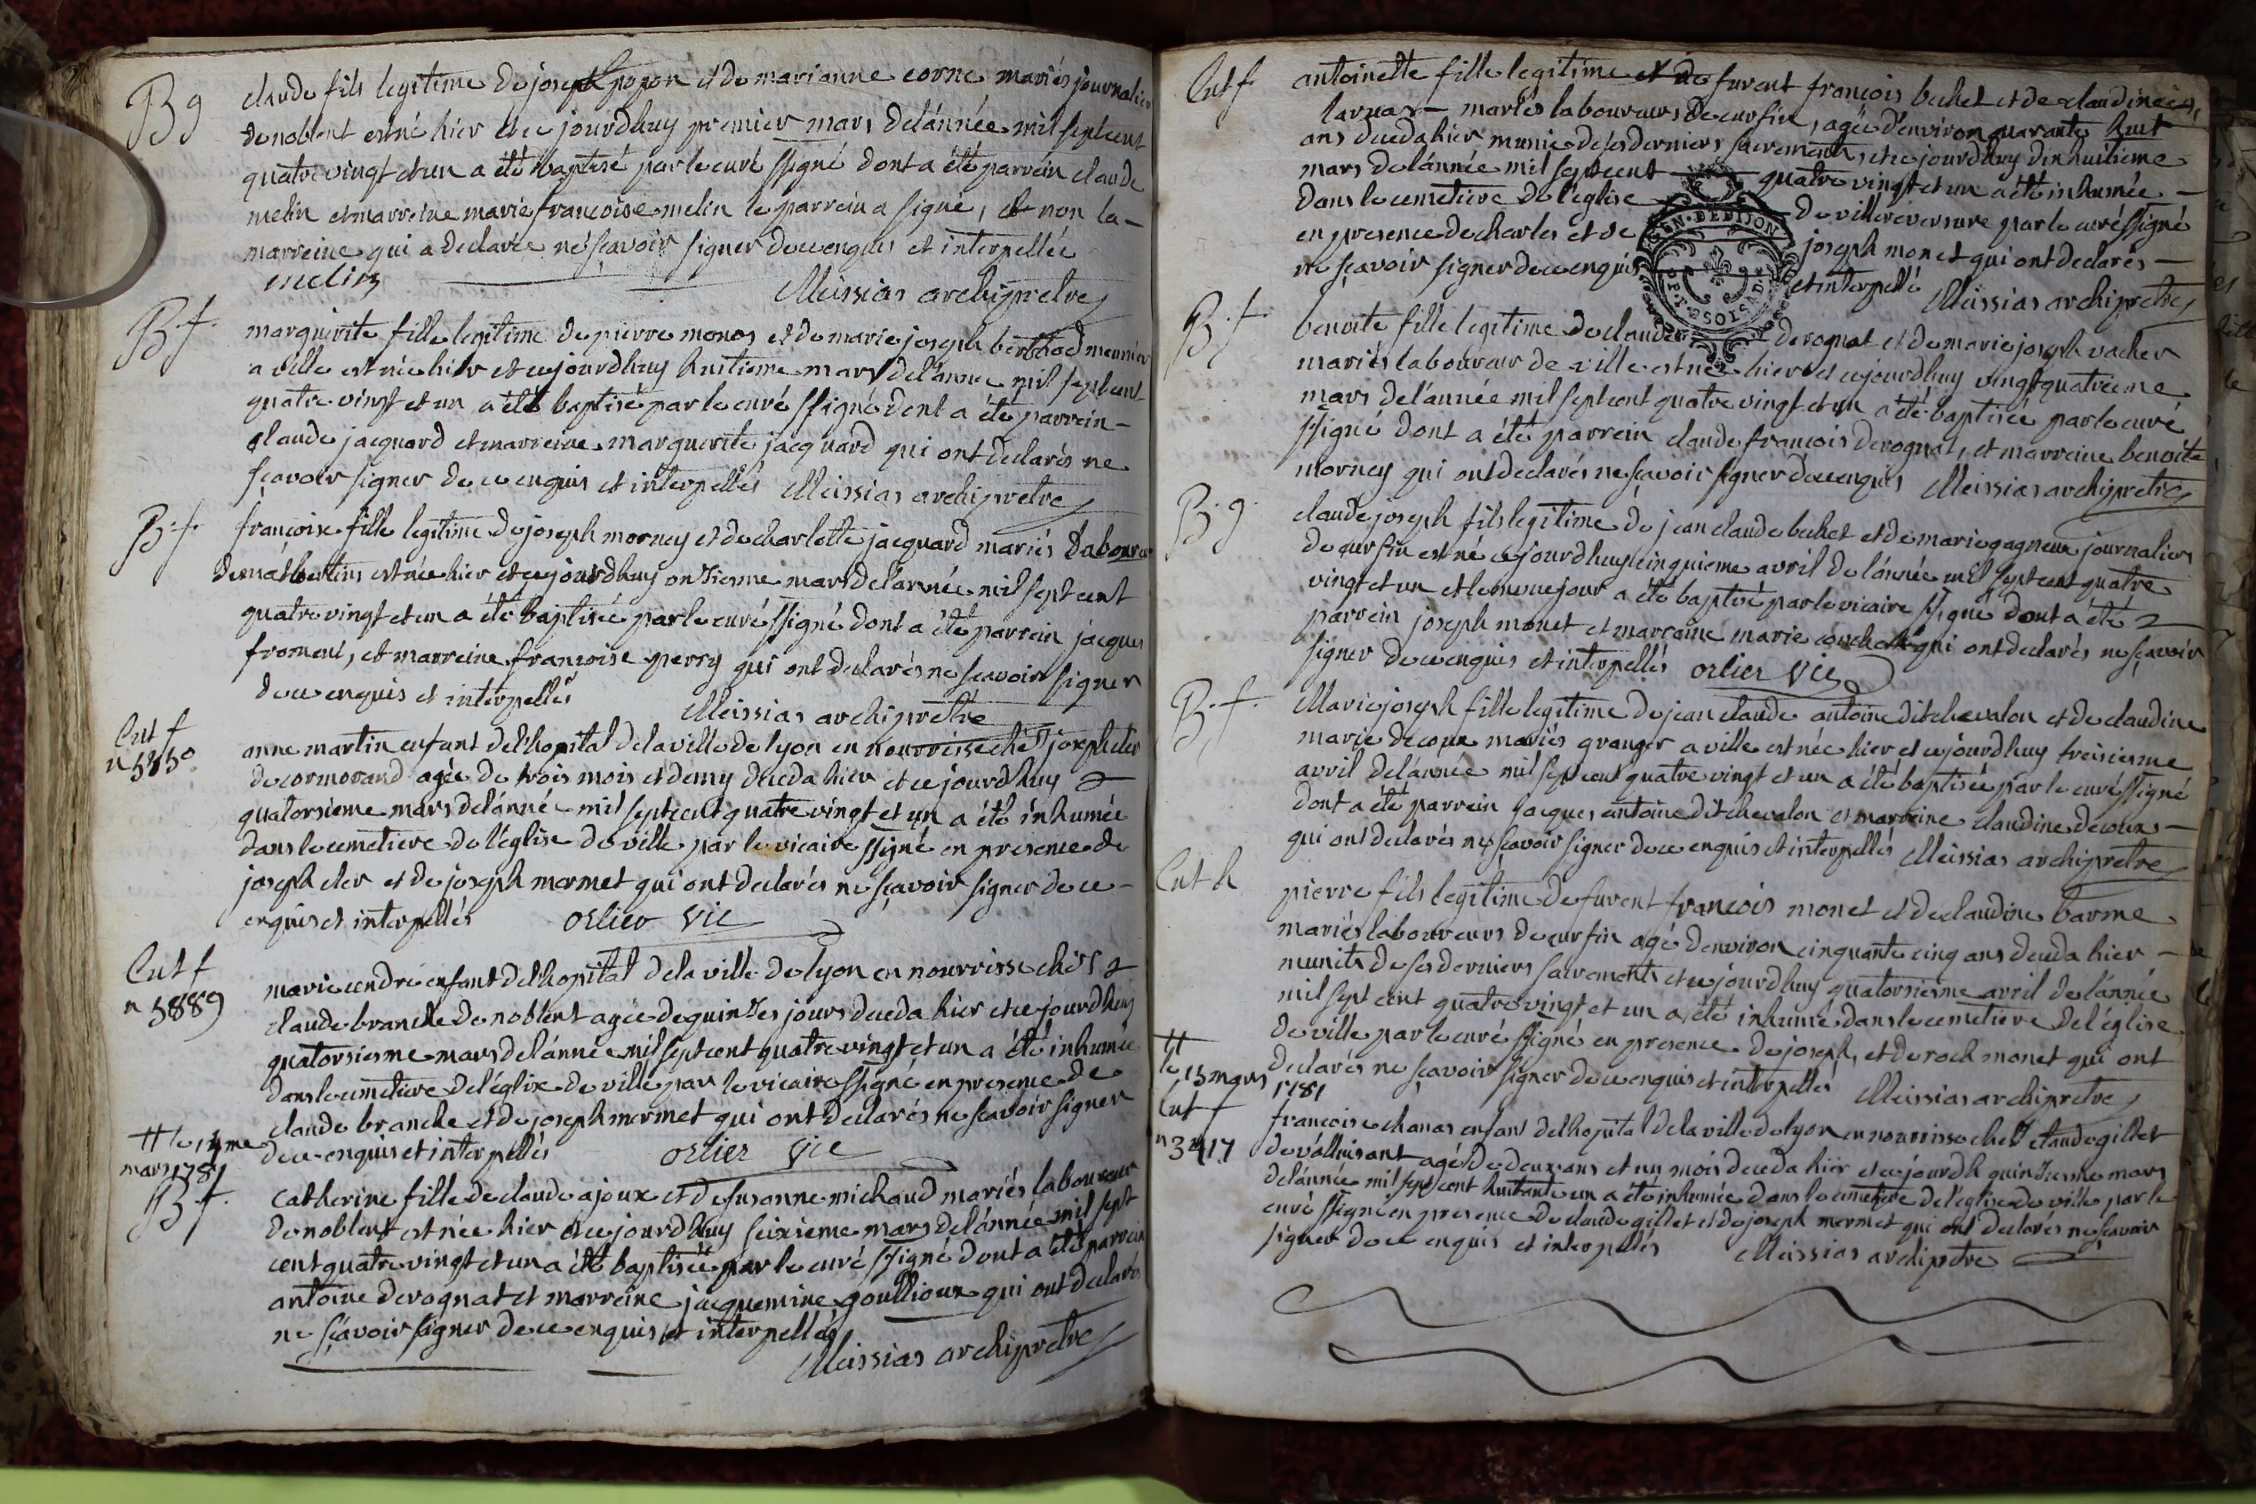 B g
claude fils legitime de joseph popon et de marianne corne mariés journalier
de noblent est né hier et ce jourdhuy premier mars delánnée mil sept cent
quatre vingt et un a été baptisé par le curé ssigné dont a été parrein claude
melin et marreine marie francoise melin le parrein a signé, et non la
marreine qui a declarée ne sçavoir signer de ce enquis et interpellée
melin
Meissias archiprêtre
B. f.
marguerite fille legitime de pierre monos et de marie joseph berthod meunier
a ville est née hier et ce jourdhuy huitieme mars delánnee mil sept cent
quatre vingt et un a été baptisé par le curé ssigné dont a été parrein
claude jacquard et marreine marguerite jacquard qui ont declarés ne
sçavoir signer de ce enquis et interpellés Meissias archiprêtre
B. f.
francoise fille legitime de joseph morney et de charlotte jacquard mariés laboureur
de est née hier et ce jourdhuy onzieme mars delánnée mil sept cent
quatre vingt et un a été baptisée par le curé ssigné dont a été parrein jacques
froment, et marreine francoise perry qui ont declarés ne sçavoir signer
de ce enquis et interpellés
Meissias archiprêtre
Ent f
n 5850
anne martin enfant delhopital dela ville de lyon en nourrisse chés joseph cler
de cormorand agée de trois mois et demy deceda hier et ce jourdhuy
quatorsieme mars delánnée mil sept cent quatre vingt et un a été inhumée
dans le cemetiere de léglise de ville par le vicaire ssigné en presence de
joseph cler et de joseph mermet qui ont declarés ne sçavoir signer de ce
enquis et interpellés orlier vic
Ent f
n 5889
marie cendre enfant delhopital dela ville de lyon en nourrisse chés
claude branche de noblent agée de quinzes jours deceda hier et ce jourdhuy
quatorsieme mars delánnée mil sept cent quatre vingt et un a été inhumée
dans le cemetiere del église de ville par le vicaire ssigné en presence de
claude branche et de joseph mermet qui ont declarés ne sçavoir signer
de ce enquis et interpellés orlier vic
mars 1781
B. f.
catherine fille de claude ajoux et de susanne michaud mariés laboureur
de noblent est née hier et ce jourdhuy seizieme mars delánnée mil sept
cent quatre vingt et un a été baptisée par le curé ssigné dont a été parrein
antoine derognat et marreine jacquemine goullioux qui ont declarés
ne sçavoir signer de ce enquis et interpellés
Meissias archiprêtre
Ent f
antoinette fille legitime et de furent francois bechet et de claudine
laruas mariés laboureurs de curfin, agée denviron quarante huit
ans deceda hier munie de ses derniers sacrements et ce jourdhuy dixhuitieme
mars delánnée mil sept cent quatre vingt et un a été inhumée
dans le cemetiere de léglise de villereversure par le curé ssigné
en presence de charles et de joseph monet qui ont declarés
ne sçavoir signer de ce enquis et interpellé
Meissias archiprêtre
GEN. DE DIJON
B. f.
benoite fille legitime de claude derognat et de marie joseph vacher
mariés laboureur de ville est née hier et ce jourdhuy vingt quatrieme
mars delánnée mil sept cent quatre vingt et un a été baptisée par le curé
ssigné dont a été parrein claude francois derognat, et marreine benoite
morney qui ont declarés ne sçavoir signer de ce enquis Meissias archiprêtre
B. g.
claude joseph fils legitime de jean claude bechet et de marie gagneux journaliers
de curfin est né ce jourdhuy cinquieme avril de lánnée mil sept cent quatre
vingt et un et le meme jour a été baptisé par le vicaire ssigné dont a été
parrein joseph monet et marraine marie qui ont declarés ne sçavoir
signer de ce enquis et interpellés orlier vic
B. f.
Marie joseph fille legitime de jean claude antoine dit chevalon et de claudine
marie decoux mariés granger a ville est née hier et ce jourdhuy treisieme
avril delánnée mil sept cent quatre vingt et un a été baptisée par le curé ssigné
dont a été parrein jacques antoine dit chevalon et marreine claudine decoux
qui ont declarés ne sçavoir signer de ce enquis et interpellés Meissias archiprêtre
Ent h
pierre fils legitime de furent francois monet et de claudine barme
mariés laboureurs de curfin agé denviron cinquante cinq ans deceda hier
munits de ses derniers sacrements et ce jourdhuy quatorsieme avril delánnée
mil sept cent quatre vingt et un a été inhumé dans le cemetiere del église
de ville par le curé ssigné en presence de joseph, et de roch monet qui ont
declarés ne sçavoir signer de ce enquis et interpellés Meissias archiprêtre
le 15 mars 1781
Ent f
n 3417
francoise chanas enfant delhopital dela ville de lyon en nourrisse chés claude gillet
de agée de deux ans et un mois deceda hier et ce jourdh quinzieme mars
delánnée mil sept cent huitante un a été inhumée dans le cemetiere del eglise de ville par le
curé ssigné en presence de claude gillet et de joseph mermet qui ont declarés ne sçavoir
signer de ce enquis et interpellés Meissias archiprêtre